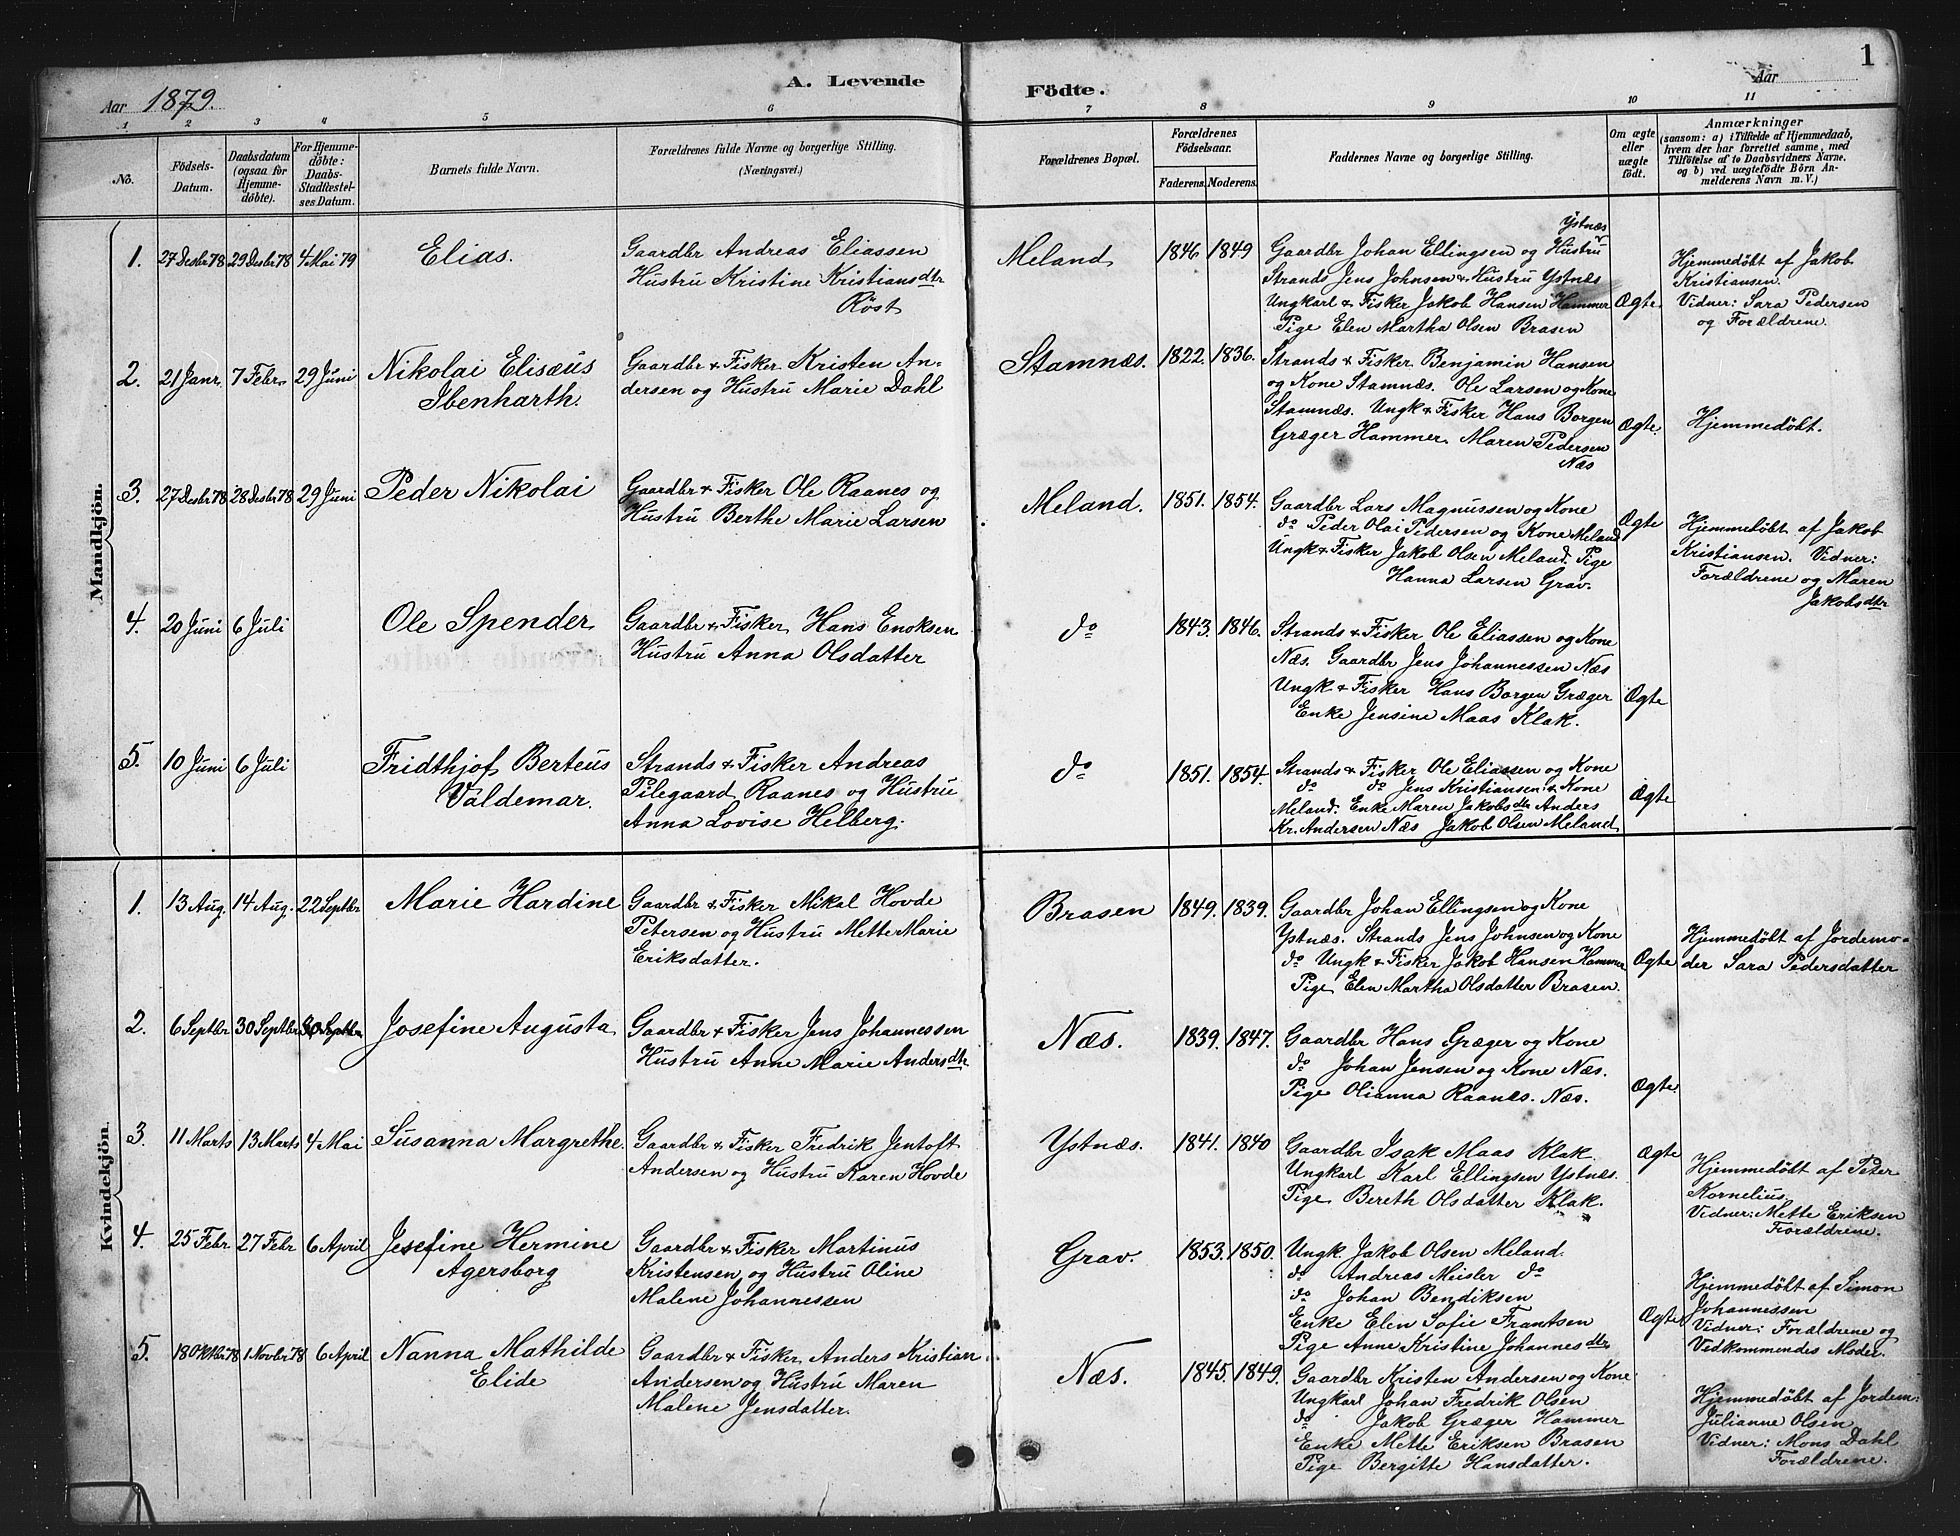 Aar 1879.
A. Levende Födte.
Aar
1
1 2 3 4 5 6 7 8 9 10 11
No.
Födsels-Datum.
Daabsdatum (ogsaa for Hjemme-døbte).
For Hjemme-døbte: Daabs-Stadfæstel-ses Datum.
Barnets fulde Navn.
Forældrenes fulde Navne og borgerlige Stilling. (Næringsvei.)
Forældrenes Bopæl.
Forældrenes Födselsaar.
Faderens. Moderens.
Faddernes Navne og borgerlige Stilling.
Om ægte eller uægte født.
Anmærkninger
(saasom: a) i Tilfælde af Hjemmedaab, hvem der har forrettet samme, med Tilföielse af to Daabsvidners Navne. og b) ved uægtefödte Börn An-melderens Navn m. V.)
Mandkjön.
1. 27 Desbr 78 29 Desbr 78 4 Mai 79 Elias.
Gaardbr Andreas Eliassen
Hustru Kristine Kristiansdtr
Röst
Meland 1846 1849
Ystnæs
Gaardbr Johan Ellingsen og Hustru
Strands Jens Johnsen & Hustru Ystnæs
Ungkarl & Fisker Jakob Hansen Hammer
Pige Elen Martha Olsen Brasen
Ægte.
Hjemmedøbt af Jakob
Kristiansen.
Vidner: Sara Pedersen
og Forældrene.
2. 21 Janr. 7 Febr. 29 Juni Nikolai Elisæus
Ibenharth.
Gaardbr & Fisker Kristen An-
dersen og Hustru Marie Dahl
Stamnæs. 1822. 1836.
Strands & Fisker Benjamin Hansen
og Kone Stamnæs. Ole Larsen og Kone
Stamnæs. Ungk & Fisker Hans Borgen
Græger Hammer. Maren Pedersen
Næs
Ægte.
Hjemmedøbt.
3. 27 Desbr 78 28 Desbr 78 29 Juni Peder Nikolai
Gaardbr & Fisker Ole Raanes og
Hustru Berthe Marie Larsen
Meland. 1851. 1854.
Gaardbr Lars Magnussen og Kone
do Peder Olai Pedersen og Kone Meland
Ungk & Fisker Jakob Olsen Meland. Pige
Hanna Larsen Grav.
Ægte
Hjemmedøbt af Jakob
Kristiansen. Vidner:
Forældrene og Maren
Jakobsdtr
4. 20 Juni 6 Juli Ole Spender
Gaardbr & Fisker Hans Enoksen
Hustru Anna Olsdatter
do 1843. 1846.
Strands & Fisker Ole Eliassen og Kone
Næs. Gaardbr Jens Johannessen Næs
Ungk & Fisker Hans Borgen Græger
Enke Jensine Maas Klak.
Ægte
5. 10 Juni 6 Juli Fridthjof Berteus
Valdemar.
Strands & Fisker Andreas
Pilegaard Raanes og Hustru
Anna Lovise Helberg.
do 1851. 1854.
Strands & Fisker Ole Eliassen og Kone
do do Jens Kristiansen & Kone
Meland. Enke Maren Jakobsdtr Anders
Kr. Andersen Næs Jakob Olsen Meland
Ægte
Kvindekjön.
1. 13 Aug. 14 Aug. 22 Septbr Marie Hardine
Gaardbr & Fisker Mikal Hovde
Petersen og Hustru Mette Marie
Eriksdatter.
Brasen 1849. 1839.
Gaardbr Johan Ellingsen og Kone
Ystnæs. Strands Jens Johnsen og Kone
do Ungk & Fisker Jakob Hansen Hammer
Pige Elen Martha Olsdatter Brasen.
Ægte
Hjemmedøbt af Jordemo-
der Sara Pedersdatter
2. 6 Septbr 30 Septbr 30 Septbr Josefine Augusta
Gaardbr & Fisker Jens Johannessen
Hustru Anne Marie Andersdtr
Næs. 1839. 1847.
Gaardbr Hans Græger og Kone
do Johan Jensen og Kone Næs.
Pige Olianna Raanæs. Næs.
Ægte.
3. 11 Marts 13 Marts 4 Mai Susanna Margrethe.
Gaardbr & Fisker Fredrik Jentoft
Andersen og Hustru Karen Hovde
Ystnæs. 1841. 1840
Gaardbr Isak Maas Klak.
Ungkarl Karl Ellingsen Ystnæs.
Pige Bereth Olsdatter Klak.
Ægte
Hjemmedøbt af Peter
Kornelius.
Vidner: Mette Eriksen
Forældrene.
4. 25 Febr 27 Febr 6 April Josefine Hermine
Agersborg
Gaardbr & Fisker Martinus
Kristensen og Hustru Oline
Malene Johannessen
Grav. 1853. 1850.
Ungk. Jakob Olsen Meland.
do Andreas Meisler do
do Johan Bendiksen
Enke Elen Sofie Frantsen
Pige Anne Kristine Johannesdtr
Ægte
Hjemmedøbt af Simon
Johannessen
Vidner: Forældrene og
Vedkommendes Moder.
5. 18 Oktbr 78 1 Novbr 78 6 April Nanna Mathilde
Elide
Gaardbr & Fisker Anders Kristian
Andersen og Hustru Maren
Malene Jensdatter.
Næs. 1845. 1849.
Gaardbr Kristen Andersen og Kone
Ungkarl Johan Fredrik Olsen
do Jakob Græger Hammer
Enke Mette Eriksen Brasen
Pige Bergitte Hansdatter.
Hjemmedøbt af Jordem:
Julianne Olsen
Vidner: Mons Dahl
Forældrene.